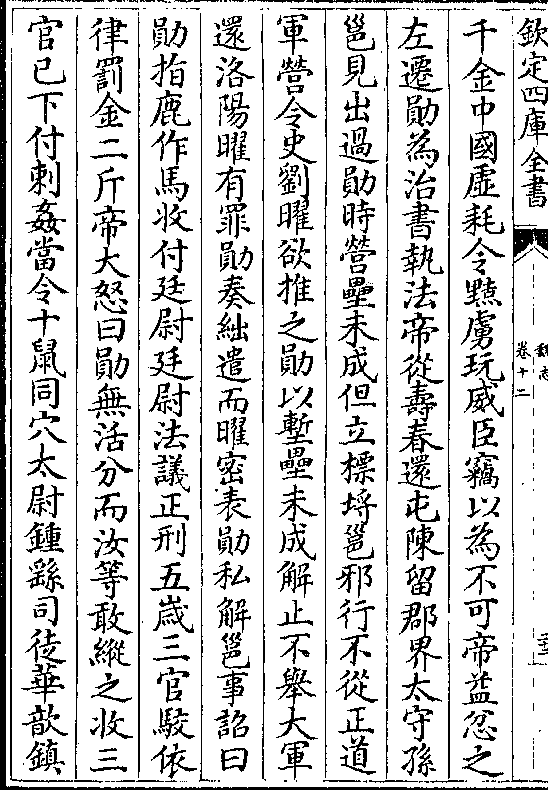 欽定四庫全書
魏志
卷十二
千金中國虛耗令黠虜玩威臣竊以為不可帝益忿之
左遷勛為治書執法帝從壽春還屯陳留郡界太守孫
邕見出過勛時營壘未成但立標埒邕邪行不從正道
軍營令史劉曜欲推之勛以塹壘未成解止不舉大軍
還洛陽曜有罪勛奏絀遣而曜密表勛私解邕事詔曰
勛指鹿作馬收付廷尉廷尉法議正刑五歲三官駮依
律罰金二斤帝大怒曰勛無活分而汝等敢縱之收三
官已下付刺姦當令十鼠同穴太尉鍾繇司徒華歆鎮